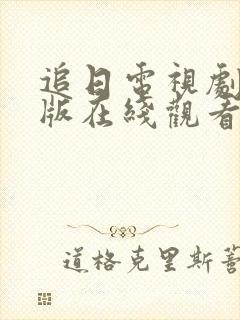 追日電視劇
版在綫觀看
道格克里斯蒂